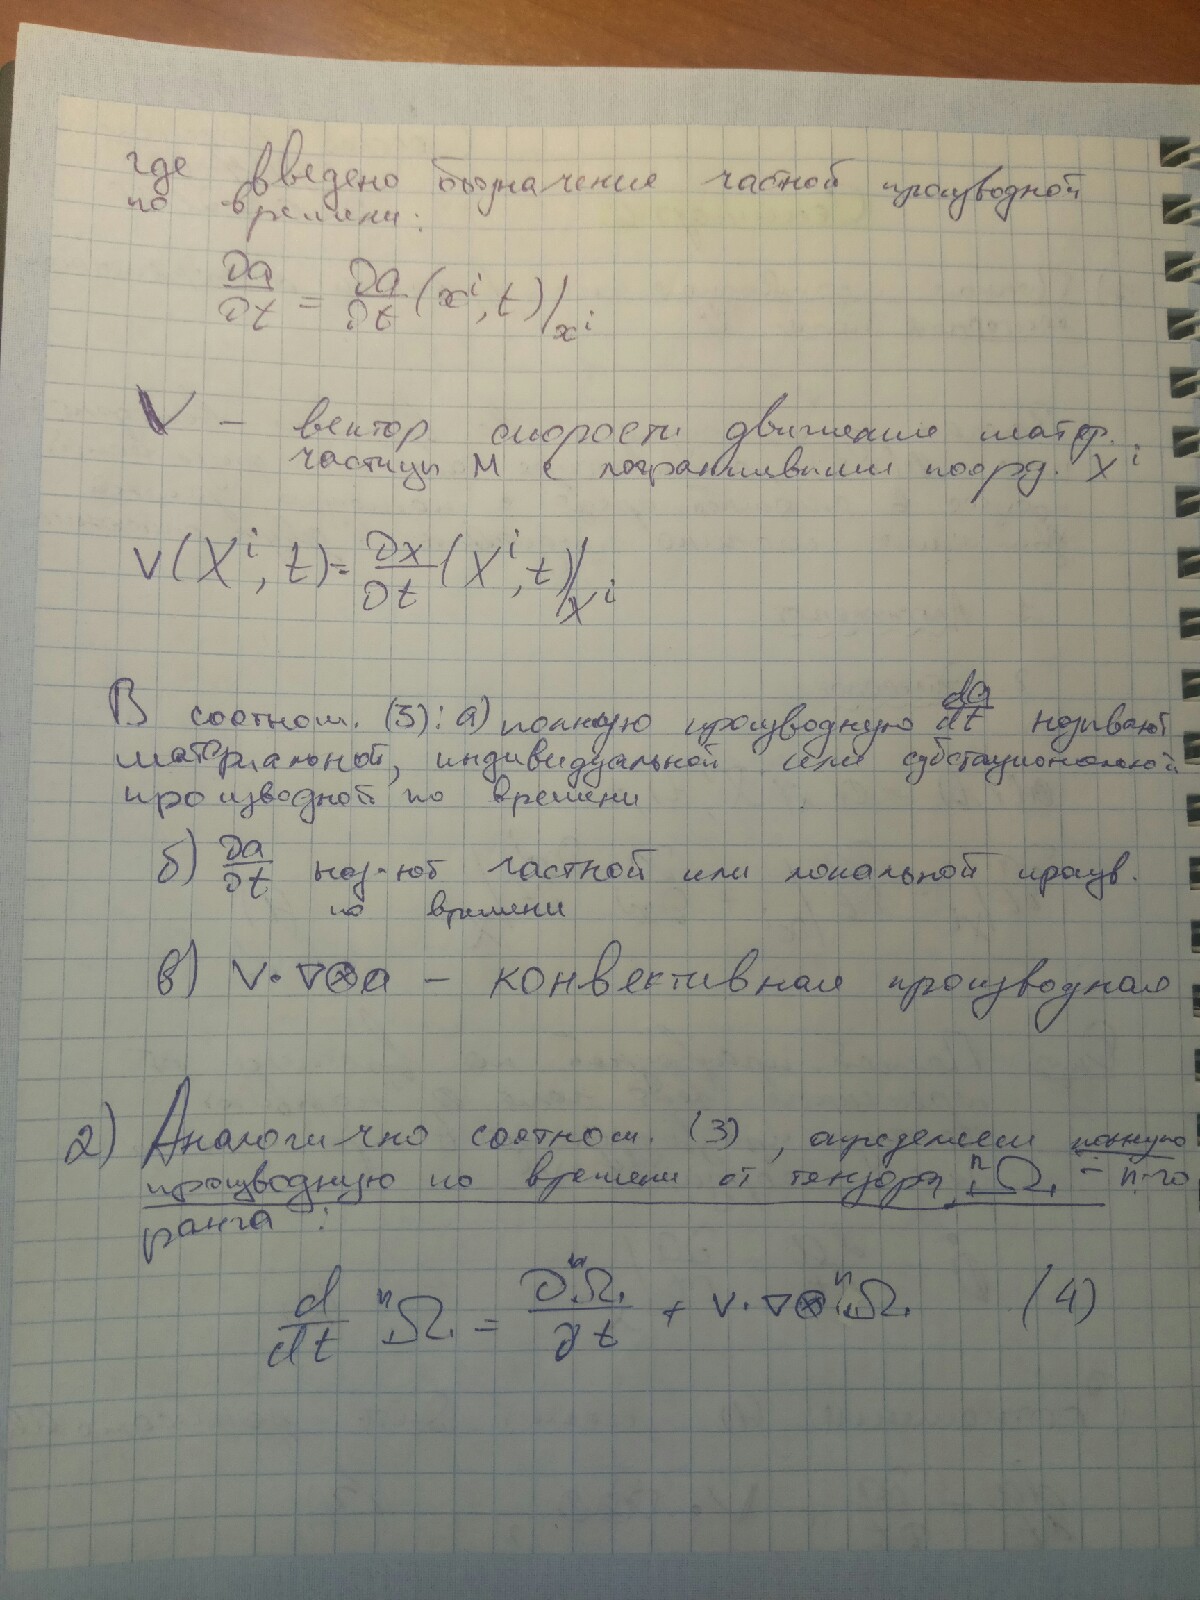 где введено обозначение частной производной
по времени:
∂a/∂t = ∂a/∂t (xⁱ, t)/xⁱ
V – вектор скорости движения матер.
частицы М с лагранжевыми коорд. Xⁱ
V(Xⁱ, t) = ∂x/∂t (Xⁱ, t)/Xⁱ
В соотнош. (3): а) полную производную da/dt называют
материальной, индивидуальной или субстациональной
производной по времени
б) ∂a/∂t наз-ют частной или локальной произв.
по времени
в) V·∇⊗a – конвективная производная
2) Аналогично соотнош. (3), определяем полную
производную по времени от тензора ⁿΩ – n-го
ранга:
d/dt ⁿΩ = ∂ⁿΩ/∂t + V·∇⊗ⁿΩ (4)